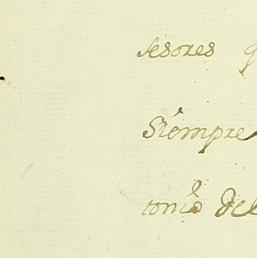 sesores q
Siempre
tonio del